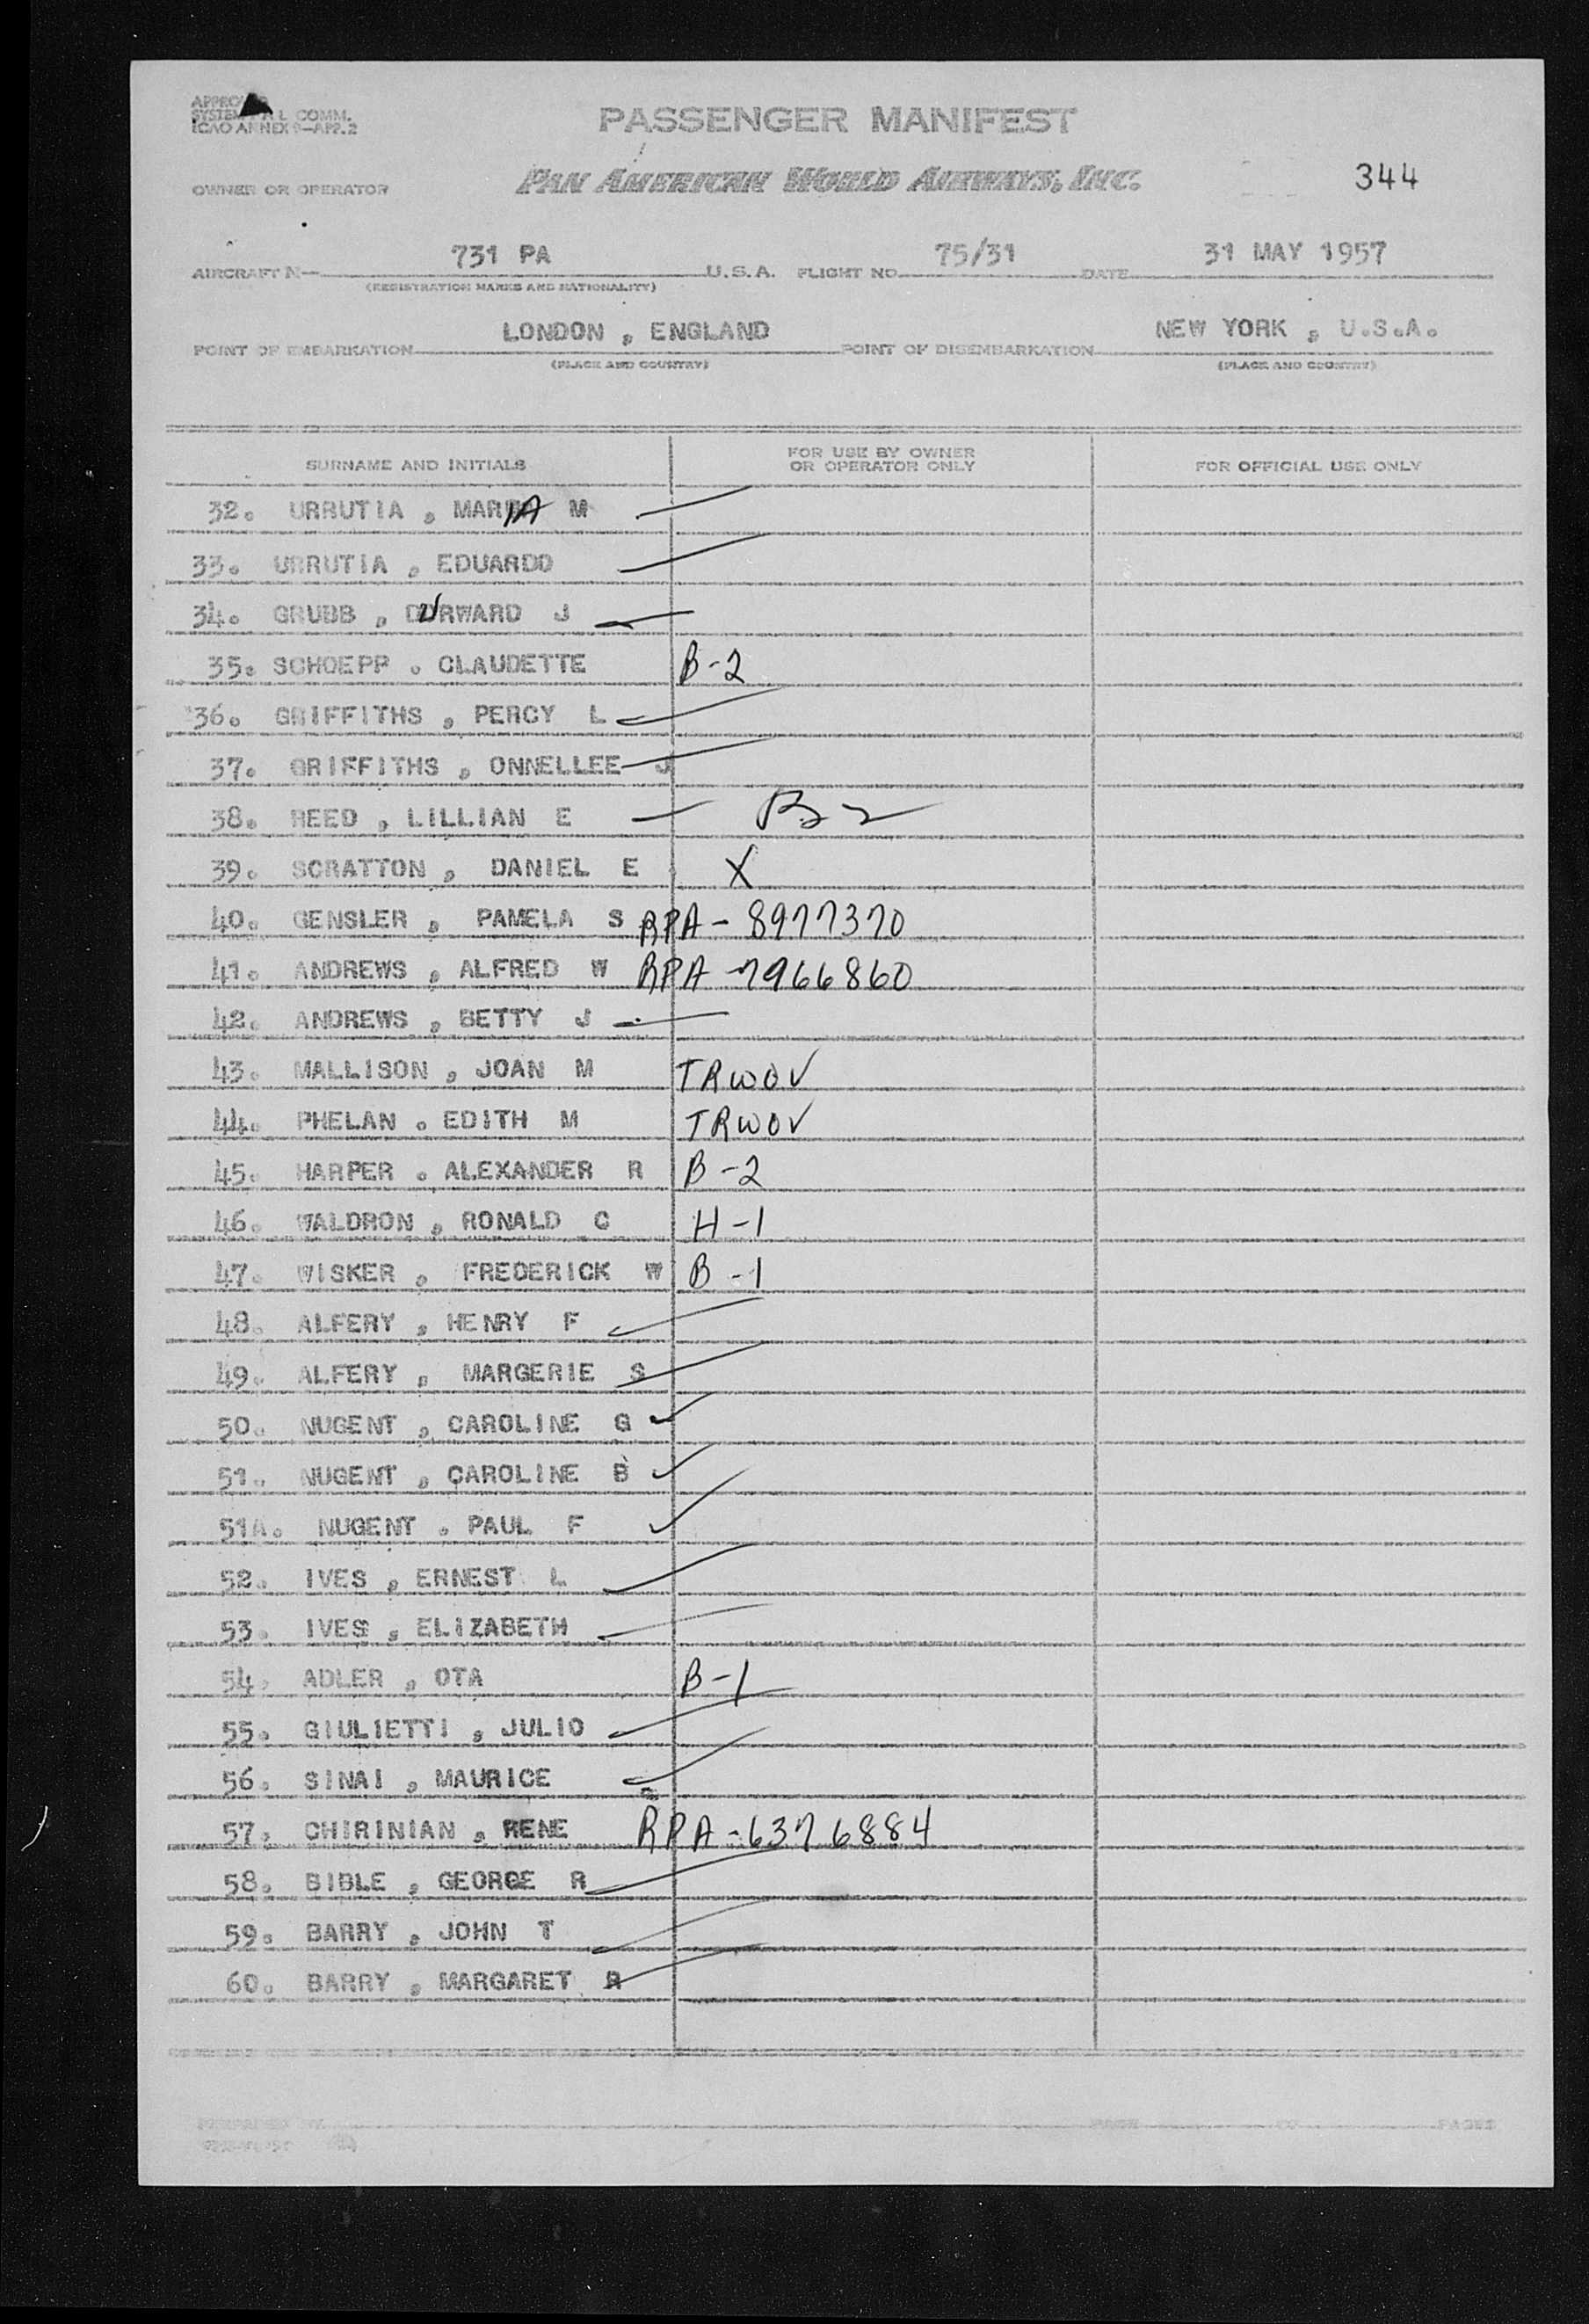 APPROVED
SYSTEM COMM.
ICAO ANNEX 9-APP.2
PASSENGER MANIFEST
OWNER OR OPERATOR PAN AMERICAN WORLD AIRWAYS, INC. 344
AIRCRAFT N— 731 PA U.S.A. FLIGHT NO. 75/31 DATE 31 MAY 1957
(REGISTRATION MARKS AND NATIONALITY)
POINT OF EMBARKATION LONDON , ENGLAND POINT OF DISEMBARKATION NEW YORK , U.S.A.
(PLACE AND COUNTRY) (PLACE AND COUNTRY)
SURNAME AND INITIALS FOR USE BY OWNER OR OPERATOR ONLY FOR OFFICIAL USE ONLY
32. URRUTIA , MARIA M
33. URRUTIA , EDUARDO
34. GRUBB , DURWARD J
35. SCHOEPP . CLAUDETTE B-2
36. GRIFFITHS , PERCY L
37. GRIFFITHS , ONNELLEE J
38. REED , LILLIAN E B2
39. SCRATTON , DANIEL E X
40. GENSLER , PAMELA S RPA - 8977370
41. ANDREWS , ALFRED W RPA - 7966860
42. ANDREWS , BETTY J
43. MALLISON , JOAN M TRWOV
44. PHELAN . EDITH M TRWOV
45. HARPER . ALEXANDER R B-2
46. WALDRON , RONALD C H-1
47. WISKER , FREDERICK W B-1
48. ALFERY , HENRY F
49. ALFERY , MARGERIE S
50. NUGENT , CAROLINE G
51. NUGENT , CAROLINE B
51A. NUGENT . PAUL F
52. IVES , ERNEST L
53. IVES , ELIZABETH
54. ADLER , OTA B-1
55. GIULIETTI , JULIO
56. SINAI , MAURICE
57. CHIRINIAN , RENE RPA - 6376884
58. BIBLE , GEORGE R
59. BARRY , JOHN T
60. BARRY , MARGARET R
PREPARED BY PAGE TO PAGES